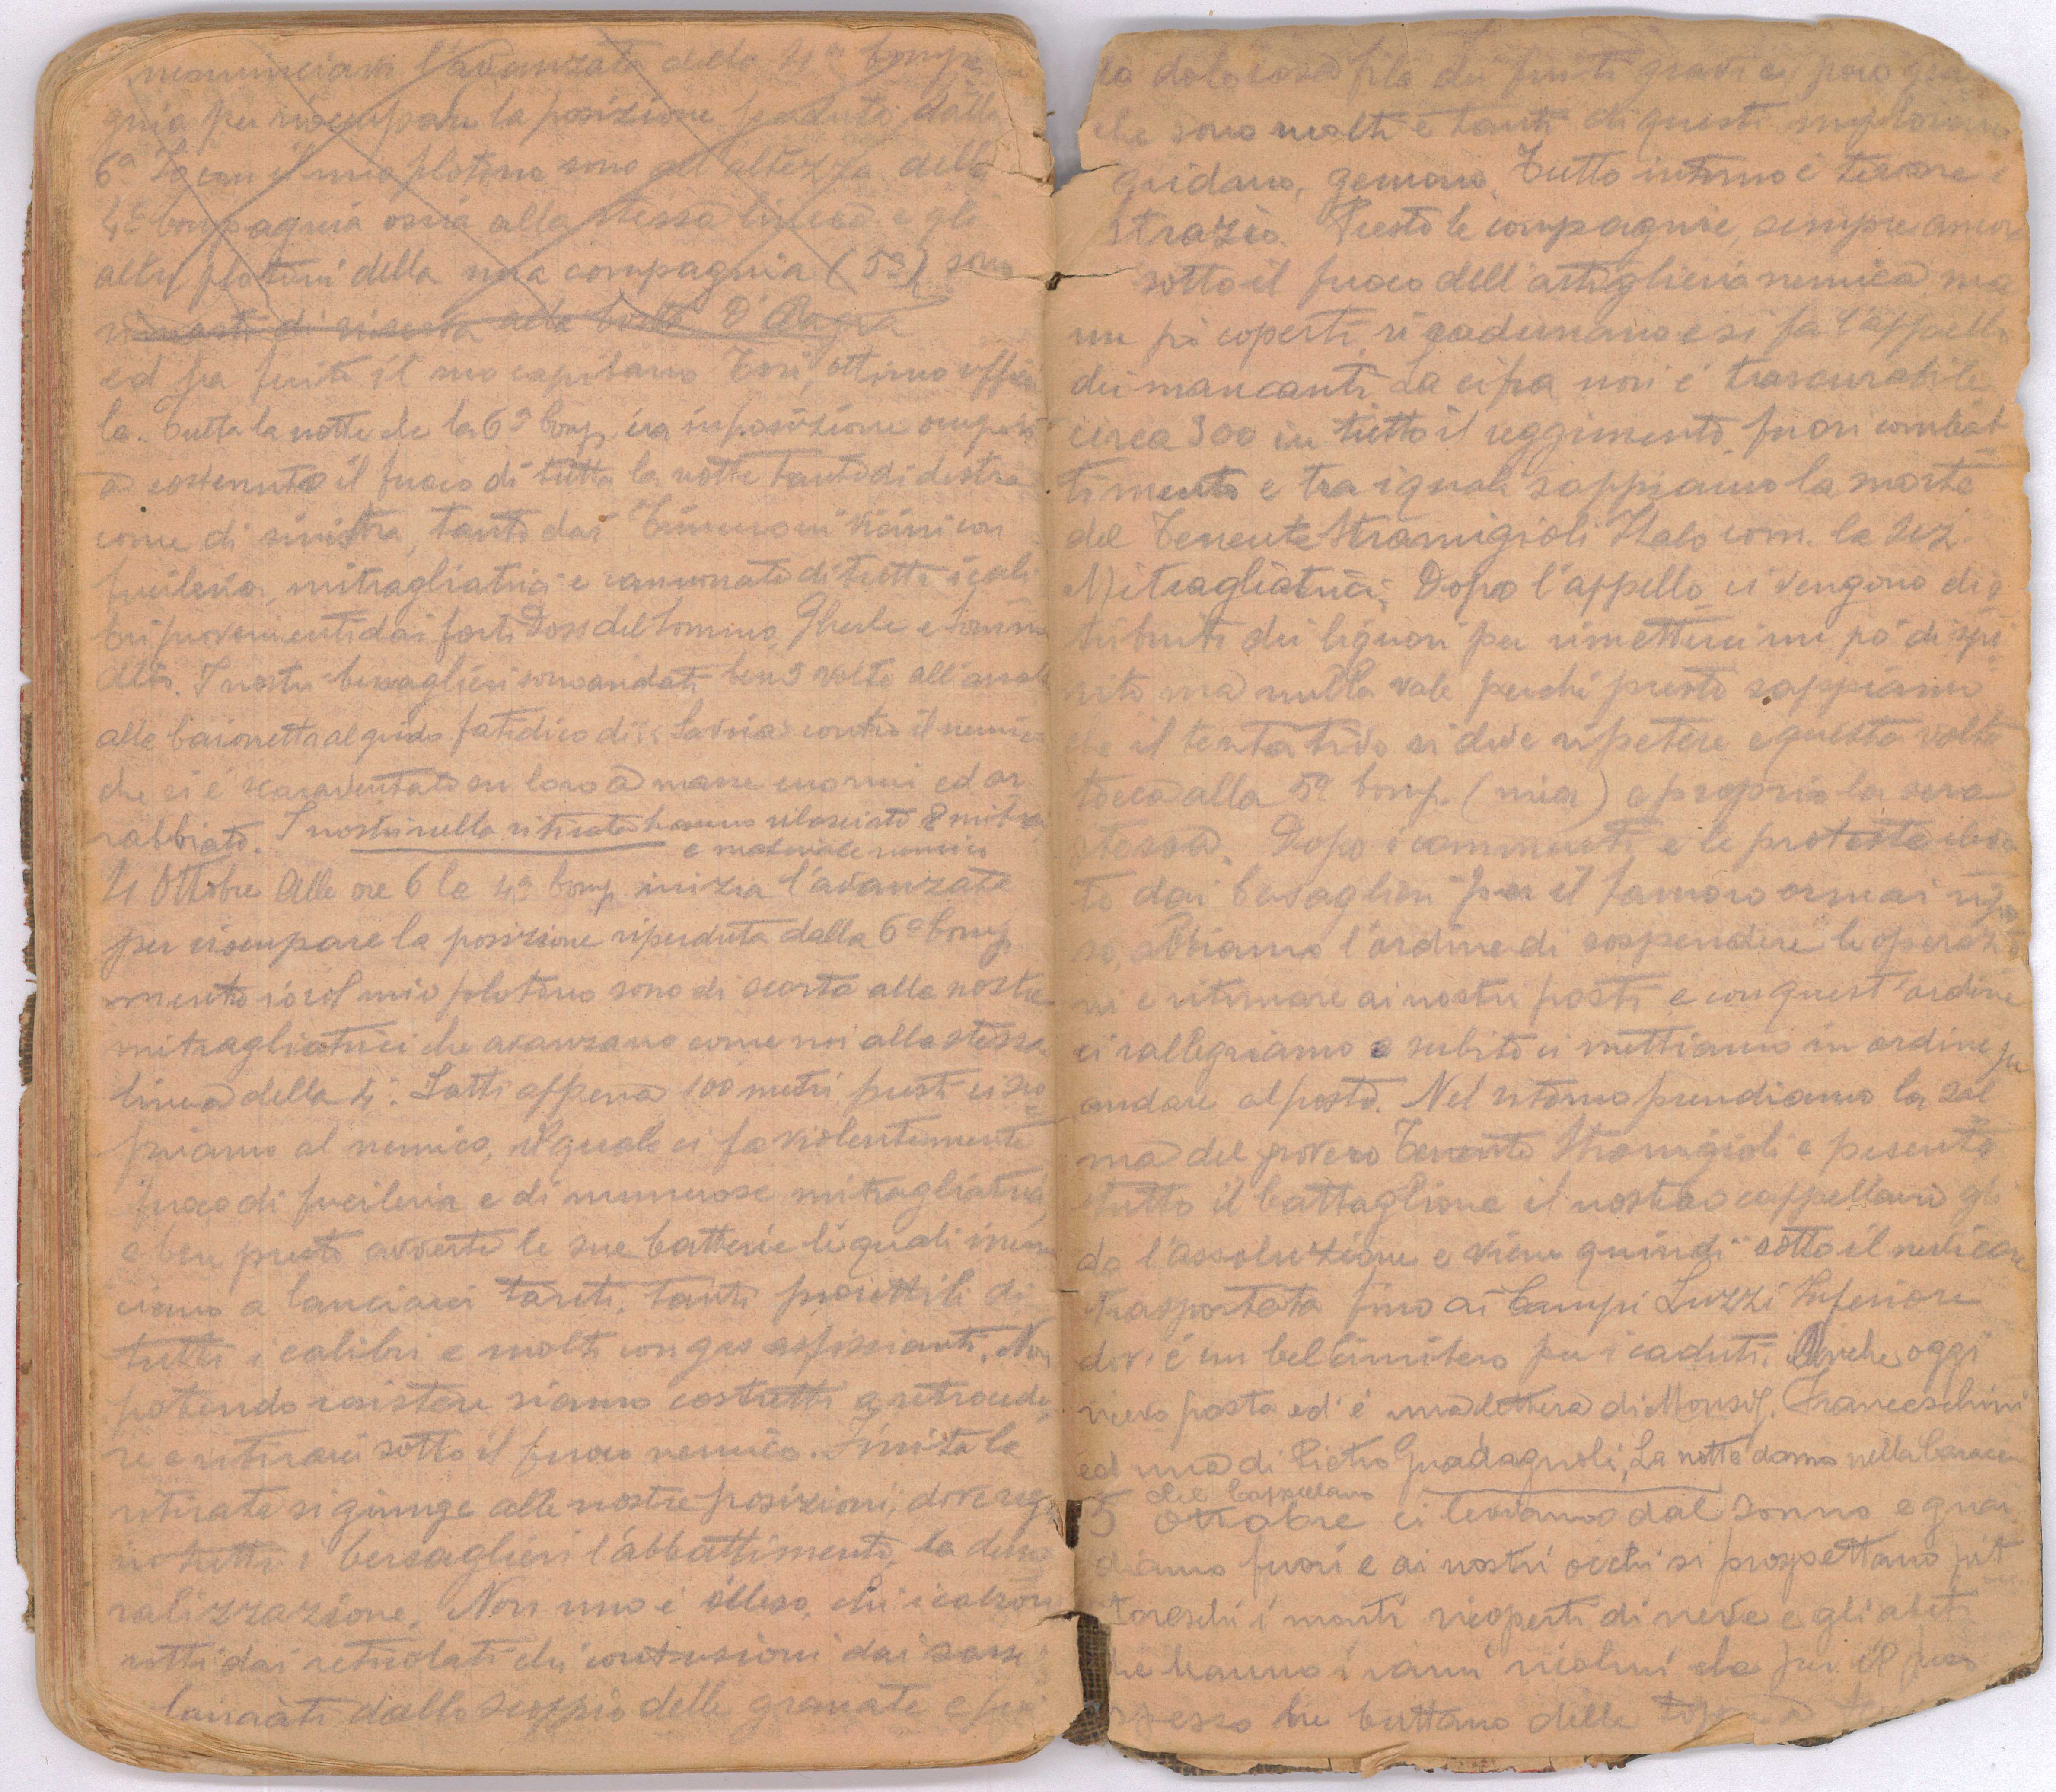 nemunciam l'avanzata della 4a Comp
gnia per rioccupare la posizione perduta dalla
6a Io con il mio plotone sono all'altezza della
4a Compagnia ossia alla stessa linea e gli
altri plotoni della mia compagnia (5a) sono
rimasti di riserva alla
ed fra feriti il suo capitano Tosi, ottimo officia
le. Tutta la notte che la 6a Comp. era in posizione
a sostenuto il fuoco di tutta la notte tanto di destra
come di sinistra, tanto dai Trinceroni vicini con
fucileria, mitragliatrici e cannonate di tutti i cali
bri provenienti dai forti Doss del Sommo, Gherle e Somm
alto. I nostri bersaglieri sono andati ben 3 volte all'assal
alla baionetta al grido fatidico di "Savoia" contro il nemico
che si è scaraventato su loro a masse enormi ed ar
rabbiato. I nostri nella ritirata hanno rilasciato 2 mitra
e materiale nemico
4 Ottobre Alle ore 6 la 4a Comp. inizia l'avanzata
per rioccupare la posizione riperduta dalla 6a Comp.
mentre io col mio plotone sono di scorta alle nostre
mitragliatrici che avanzano come noi alla stessa
linea della 4a. Fatti appena 100 metri, presto ci sco
priamo al nemico, il quale ci fa violentemente
fuoco di fucileria e di numerose mitragliatrici,
e ben presto avverte le sue batterie le quali incom
ciano a lanciarci tanti, tanti proiettili di
tutti i calibri e molti con gas asfissianti. Non
potendo resistere siamo costretti a retrocede
re e ritirarci sotto il fuoco nemico. Finita la
ritirata si giunge alle nostre posizioni, dove reg
na tutti i bersaglieri l'abbattimento, la demo
ralizzazione. Non uno è illeso, chi i calzoni
rotti dai reticolati chi contusioni dai sassi
lanciati dallo scoppio delle granate e poi
la dolorosa fila dei feriti gravi e poco gra
che sono molti e tanti di questi implorano
gridano, gemono. Tutto intorno è terrore e
strazio. Presto le compagnie, sempre ancora
sotto il fuoco dell'artiglieria nemica ma
un pò coperti, si radunano e si fa l'appello
dei mancanti. La cifra non è trascurabile
circa 300 in tutto il reggimento fuori combat
timento e tra i quali sappiamo la morte
del Tenente Stramigioli Italo com. la sez.
Mitragliatrici. Dopo l'appello ci vengono dis
tribuiti dei liquori per rimetterci un pò di spi
rito ma nulla vale perchè presto sappiamo
che il tentativo si deve ripetere e questa volta
tocca alla 5a Comp. (mia) e proprio la sera
stessa. Dopo i commenti e le proteste eleva
te dai bersaglieri per il famoso ormai ripo
so, abbiamo l'ordine di sospendere le operazio
ni e ritornare ai nostri posti e con quest'ordine
ci rallegriamo e subito ci mettiamo in ordine per
andare al posto. Nel ritorno prendiamo la sal
ma del povero Tenente Stramigioli e presente
tutto il battaglione il nostro cappellano gli
da l'assoluzione e viene quindi sotto il nevicare
trasportata fino ai Campi Luzzi Inferiore
dov'è un bel cimitero per i caduti. Anche oggi
ricevo posta ed è una lettera di Monsig. Franceschini
ed una di Pietro Guadagnoli. La notte dormo nella baracca
del Cappellano
5 Ottobre ci leviamo dal sonno e guar
diamo fuori e ai nostri occhi si prospettano pit
toreschi i monti ricoperti di neve e gli abeti
che hanno i rami ricolmi che per il peso
spesso ne buttano delle